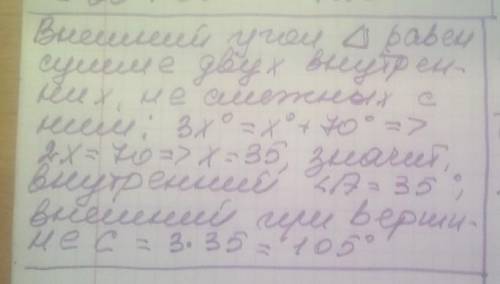 Внешний угол △ равен
сумме двух внутрен-
них, не смежных с
ним: 3x° = x° + 70° =>
2x = 70 => x = 35, значит,
внутренний ∠A = 35°,
внешний при верши-
не C = 3·35 = 105°